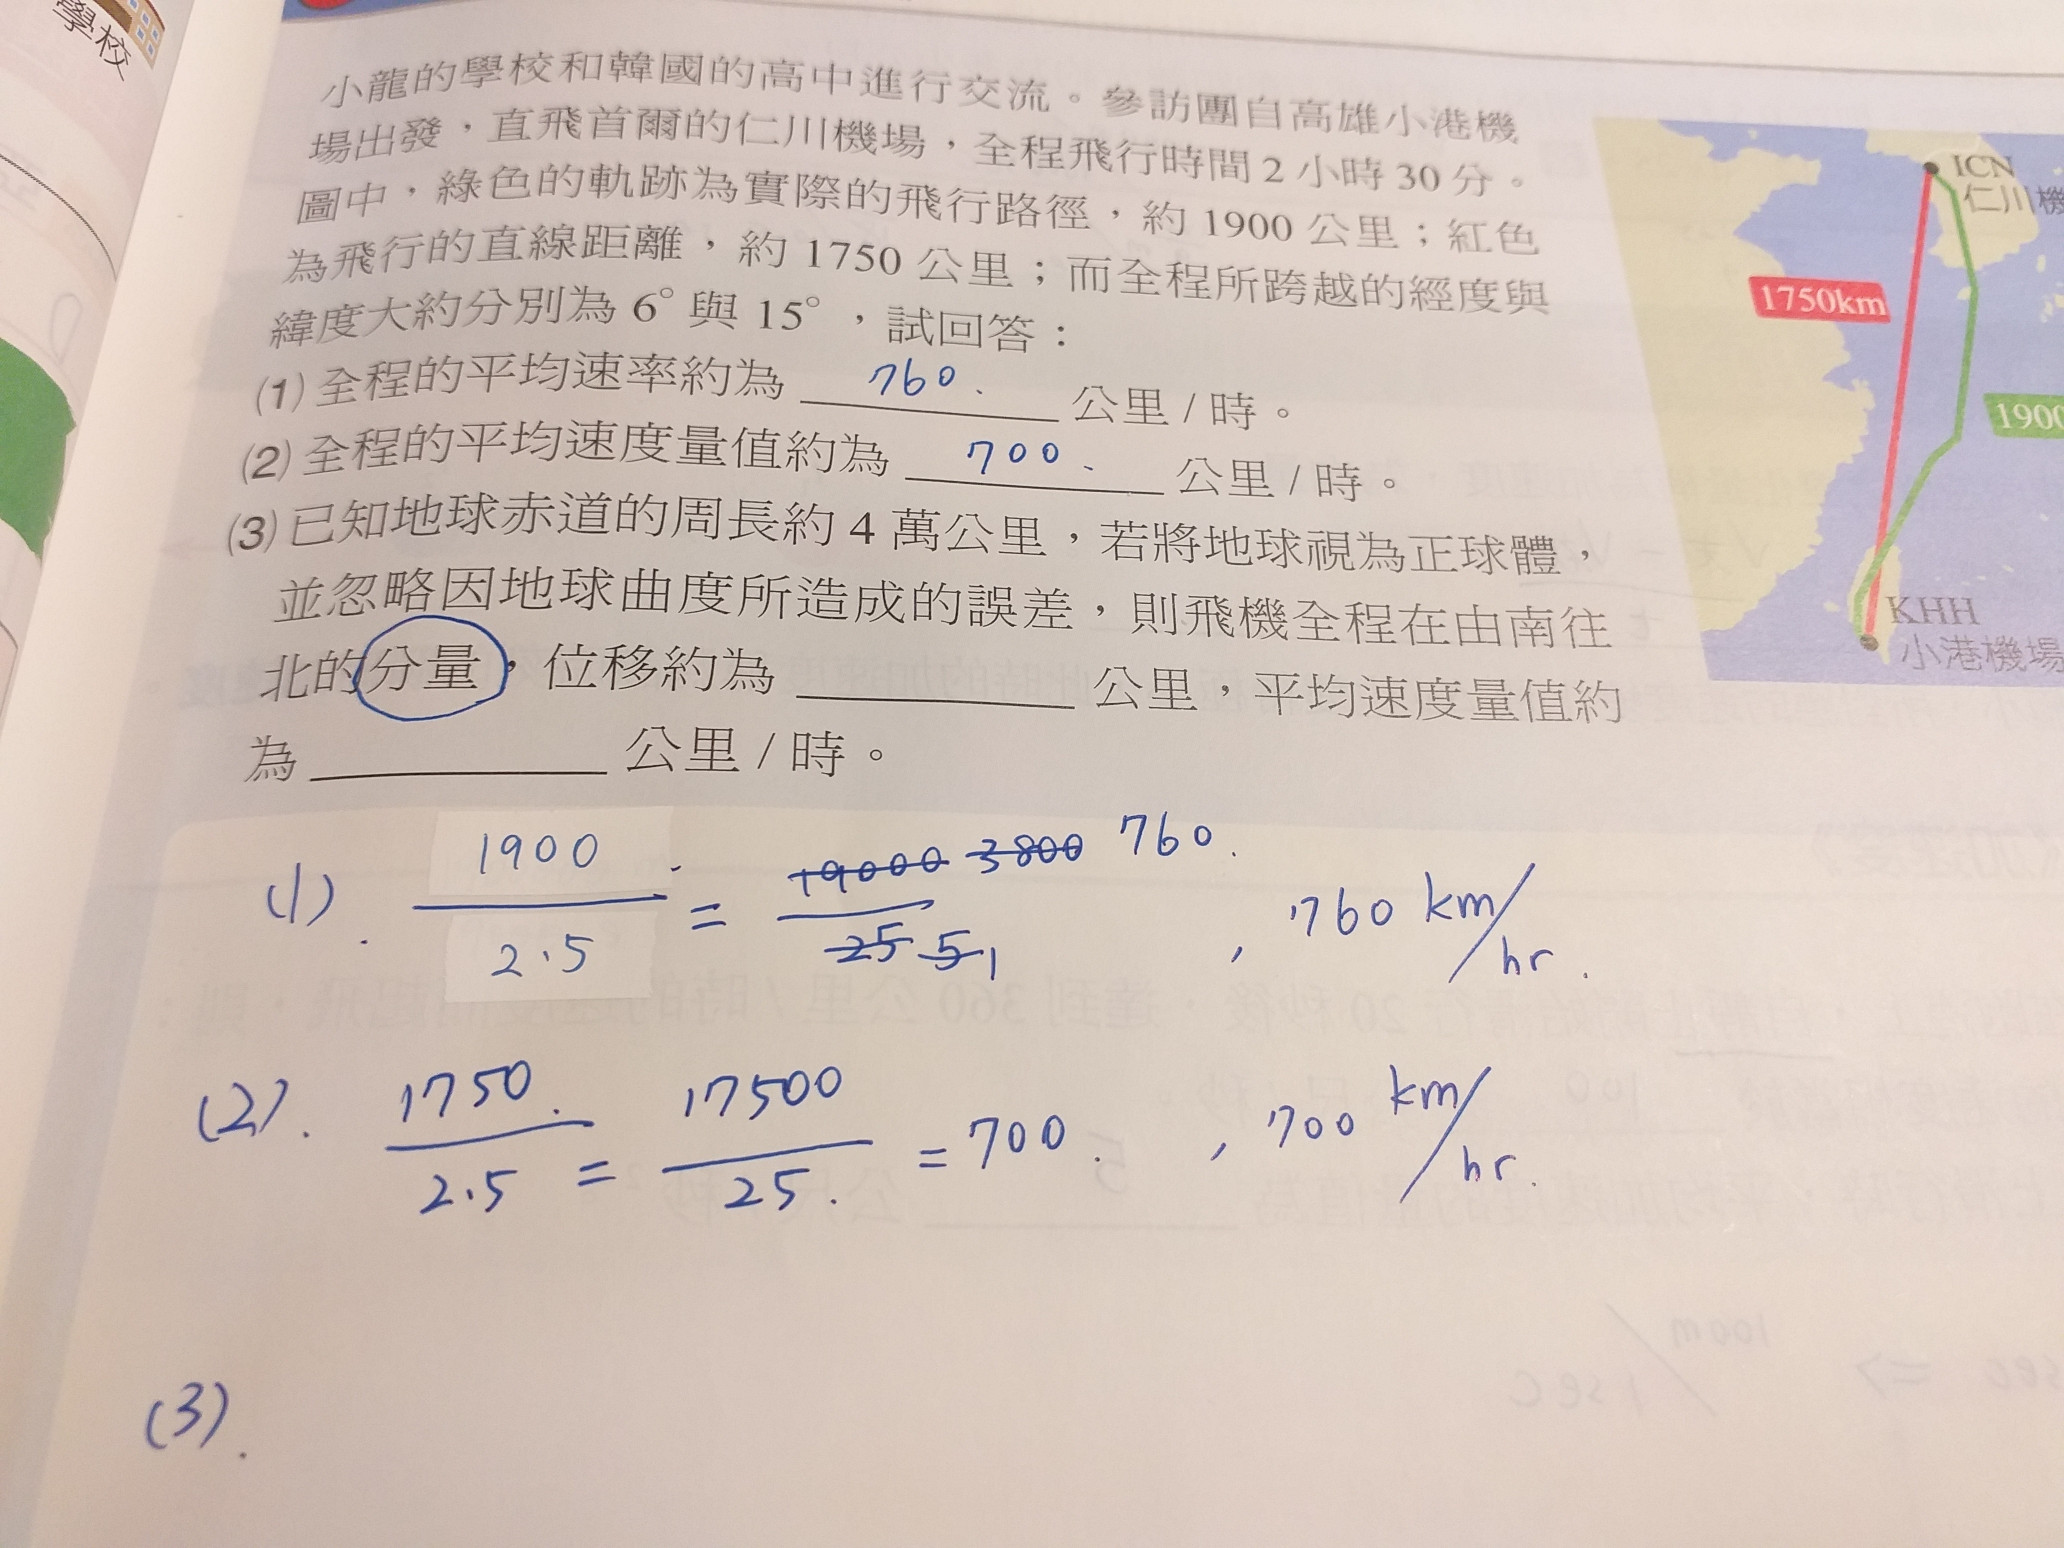 學校
小龍的學校和韓國的高中進行交流。參訪團自高雄小港機
場出發,直飛首爾的仁川機場,全程飛行時間2小時30分。
圖中,綠色的軌跡為實際的飛行路徑,約1900公里;紅色
為飛行的直線距離,約1750公里;而全程所跨越的經度與
緯度大約分別為6°與15°,試回答:
(1)全程的平均速率約為 760. 公里/時。
(2)全程的平均速度量值約為 700. 公里/時。
(3)已知地球赤道的周長約4萬公里,若將地球視為正球體,
並忽略因地球曲度所造成的誤差,則飛機全程在由南往
北的分量,位移約為 ______ 公里,平均速度量值約
為 ______ 公里/時。
ICN
仁川機
1750km
1900
KHH
小港機場
(1). 1900/2.5 = 19000/25 3800/5 760/1, 760 km/hr.
(2). 1750/2.5 = 17500/25 = 700. , 700 km/hr.
(3).